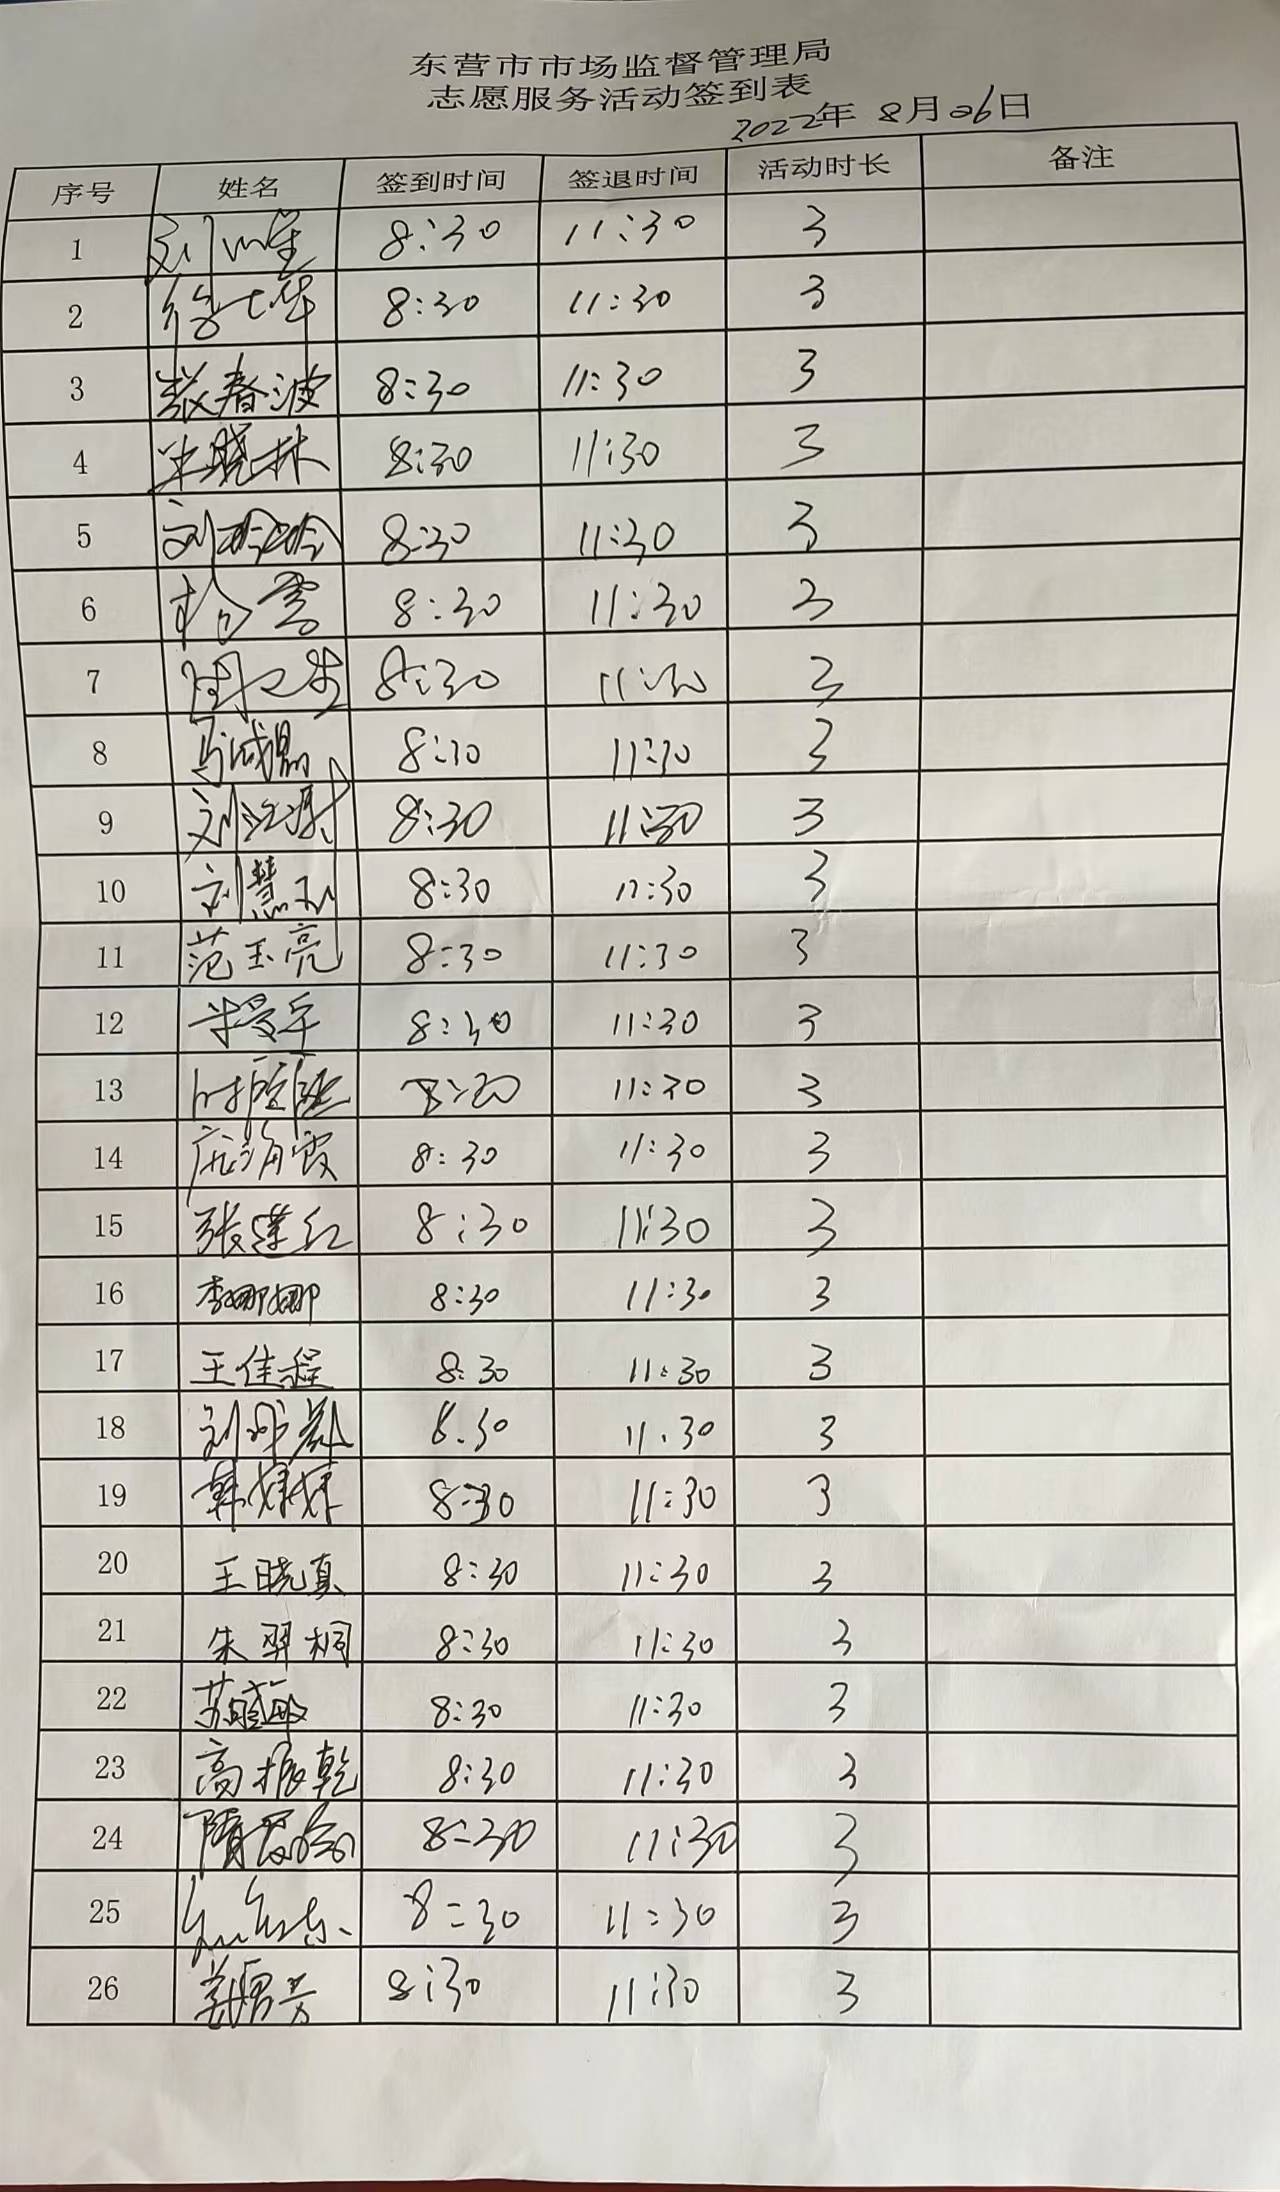 东营市市场监督管理局
志愿服务活动签到表
2022年 8月26日
序号 姓名 签到时间 签退时间 活动时长 备注
1 8:30 11:30 3
2 8:30 11:30 3
3 张春波 8:30 11:30 3
4 朱晓林 8:30 11:30 3
5 刘玲玲 8:30 11:30 3
6 8:30 11:30 3
7 8:30 11:30 3
8 8:30 11:30 3
9 8:30 11:30 3
10 刘慧 8:30 11:30 3
11 范玉亮 8:30 11:30 3
12 8:30 11:30 3
13 8:30 11:30 3
14 庞海霞 8:30 11:30 3
15 张莲红 8:30 11:30 3
16 李娜娜 8:30 11:30 3
17 王佳程 8:30 11:30 3
18 8.30 11.30 3
19 韩婷婷 8:30 11:30 3
20 王晓真 8:30 11:30 3
21 朱羿桐 8:30 11:30 3
22 苏晓敏 8:30 11:30 3
23 高振乾 8:30 11:30 3
24 8:30 11:30 3
25 8:30 11:30 3
26 8:30 11:30 3